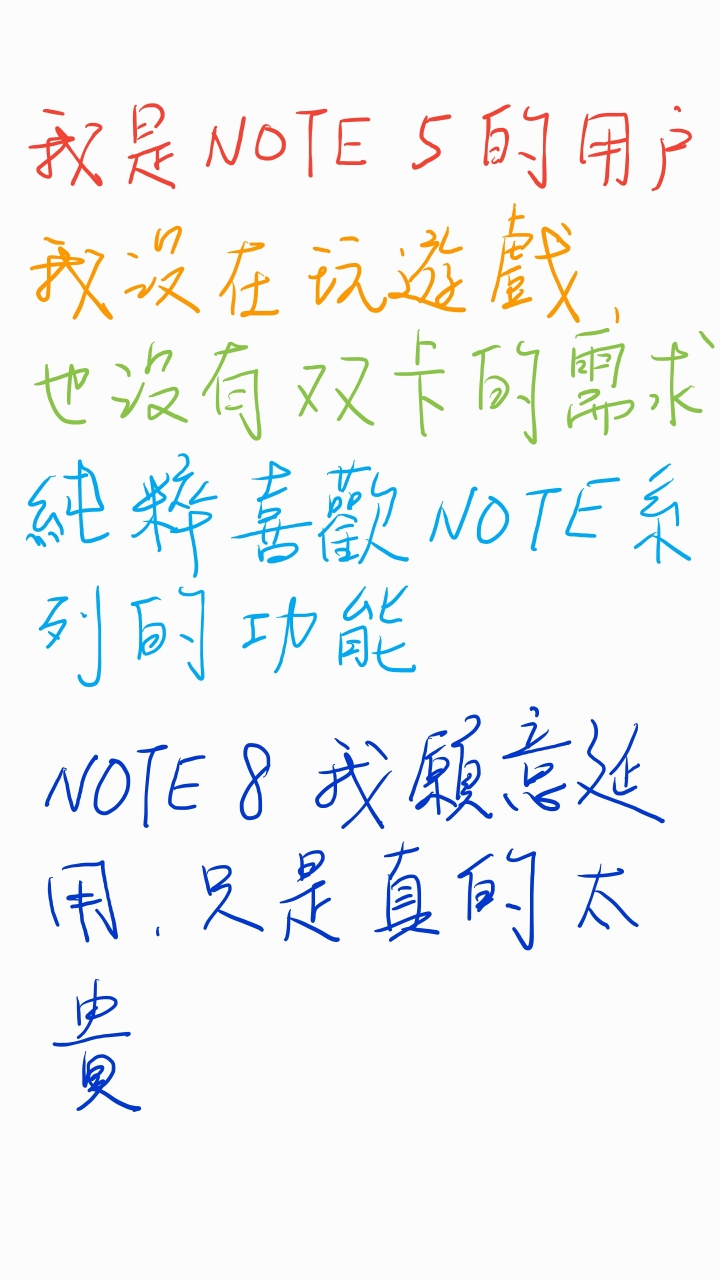 我是NOTE 5的用户
我沒在玩遊戲,
也沒有双卡的需求
純粹喜歡NOTE系
列的功能
NOTE 8 我願意延
用,只是真的太
貴